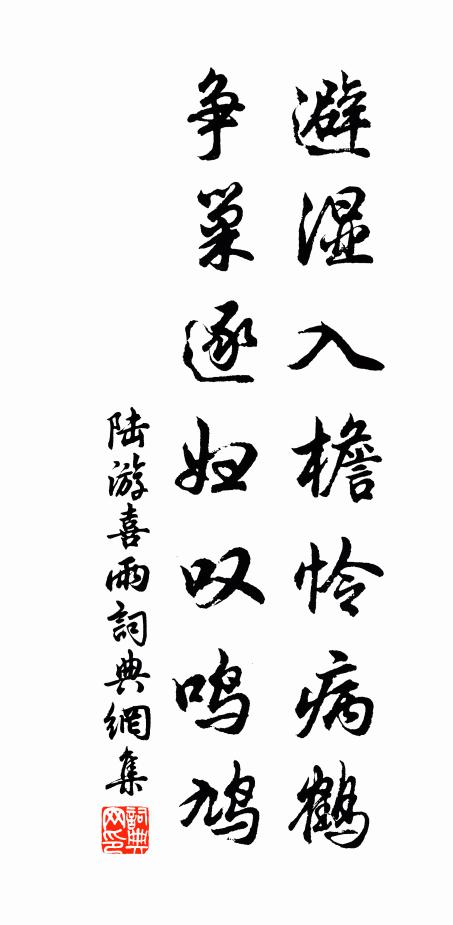 避湿入檐怜病鹤
争巢逐妇叹鸣鸠
陆游喜雨詞典網集
詞典网印